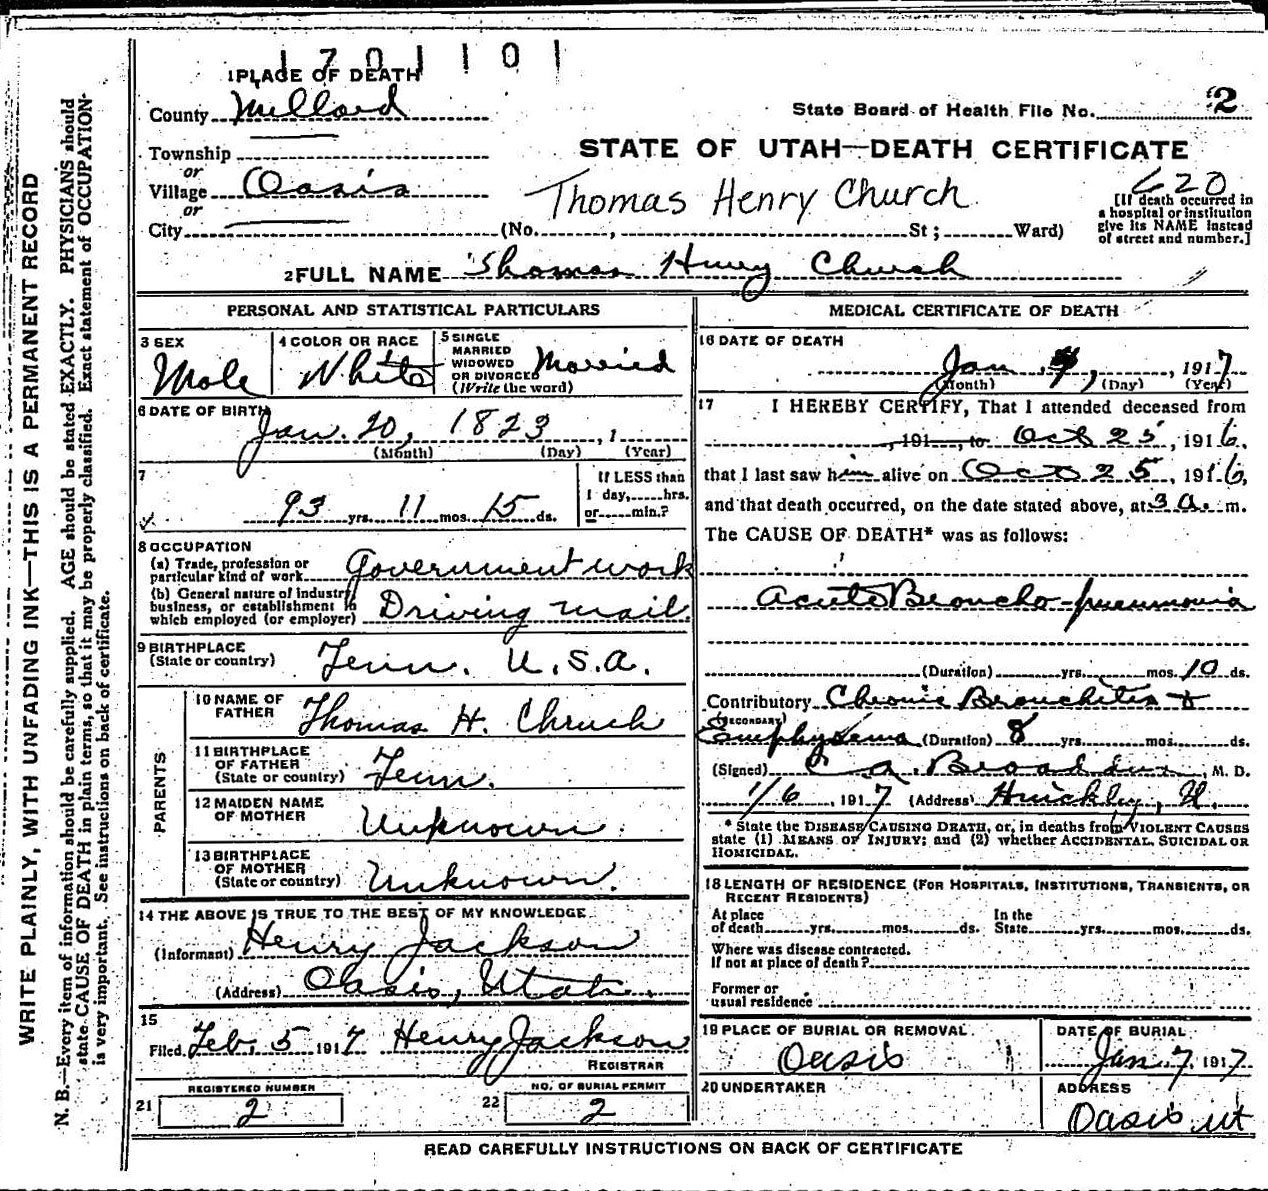 1701101
1 PLACE OF DEATH
County Millard
State Board of Health File No. 2
Township
or
Village Oasis
or
City (No. , St; Ward)
STATE OF UTAH—DEATH CERTIFICATE
Thomas Henry Church
620
[If death occurred in
a hospital or institution
give its NAME instead
of street and number.]
2 FULL NAME Thomas Henry Church
PERSONAL AND STATISTICAL PARTICULARS
3 SEX
Male
4 COLOR OR RACE
White
5 SINGLE
MARRIED
WIDOWED
OR DIVORCED
(Write the word)
Married
6 DATE OF BIRTH
Jan. 20, 1823, 1
(Month) (Day) (Year)
7
93 yrs. 11 mos. 15 ds.
If LESS than
1 day, hrs.
or min.?
8 OCCUPATION
(a) Trade, profession or
particular kind of work Government work
(b) General nature of industry
business, or establishment in
which employed (or employer) Driving mail
9 BIRTHPLACE
(State or country) Tenn. U.S.A.
PARENTS
10 NAME OF
FATHER Thomas H. Chruch
11 BIRTHPLACE
OF FATHER
(State or country) Tenn.
12 MAIDEN NAME
OF MOTHER Unknown.
13 BIRTHPLACE
OF MOTHER
(State or country) Unknown.
14 THE ABOVE IS TRUE TO THE BEST OF MY KNOWLEDGE
(Informant) Henry Jackson
(Address) Oasis, Utah.
15
Filed Feb. 5 1917 Henry Jackson
REGISTRAR
REGISTERED NUMBER
21 2
NO. OF BURIAL PERMIT
22 2
MEDICAL CERTIFICATE OF DEATH
16 DATE OF DEATH
Jan , 1917
(Month) (Day) (Year)
17 I HEREBY CERTIFY, That I attended deceased from
, 191 , to Oct 25, 1916,
that I last saw him alive on Oct 25, 1916,
and that death occurred, on the date stated above, at 3 a. m.
The CAUSE OF DEATH* was as follows:
Acute Broncho-pneumonia
(Duration) yrs. mos. 10 ds.
Contributory Chronic Bronchitis +
(SECONDARY)
Emphysema (Duration) 8 yrs. mos. ds.
(Signed) C A. Broaddus, M. D.
1/6, 1917 (Address) Hinckley, U.
* State the DISEASE CAUSING DEATH, or, in deaths from VIOLENT CAUSES
state (1) MEANS OF INJURY; and (2) whether ACCIDENTAL, SUICIDAL OR
HOMICIDAL.
18 LENGTH OF RESIDENCE (FOR HOSPITALS, INSTITUTIONS, TRANSIENTS, OR
RECENT RESIDENTS)
At place
of death yrs. mos. ds.
In the
State yrs. mos. ds.
Where was disease contracted.
If not at place of death?
Former or
usual residence
19 PLACE OF BURIAL OR REMOVAL
Oasis
DATE OF BURIAL
Jan 7, 1917
20 UNDERTAKER
ADDRESS
Oasis ut
READ CAREFULLY INSTRUCTIONS ON BACK OF CERTIFICATE
WRITE PLAINLY, WITH UNFADING INK—THIS IS A PERMANENT RECORD
N. B.—Every item of information should be carefully supplied. AGE should be stated EXACTLY. PHYSICIANS should
state CAUSE OF DEATH in plain terms, so that it may be properly classified. Exact statement of OCCUPATION
is very important. See instructions on back of certificate.